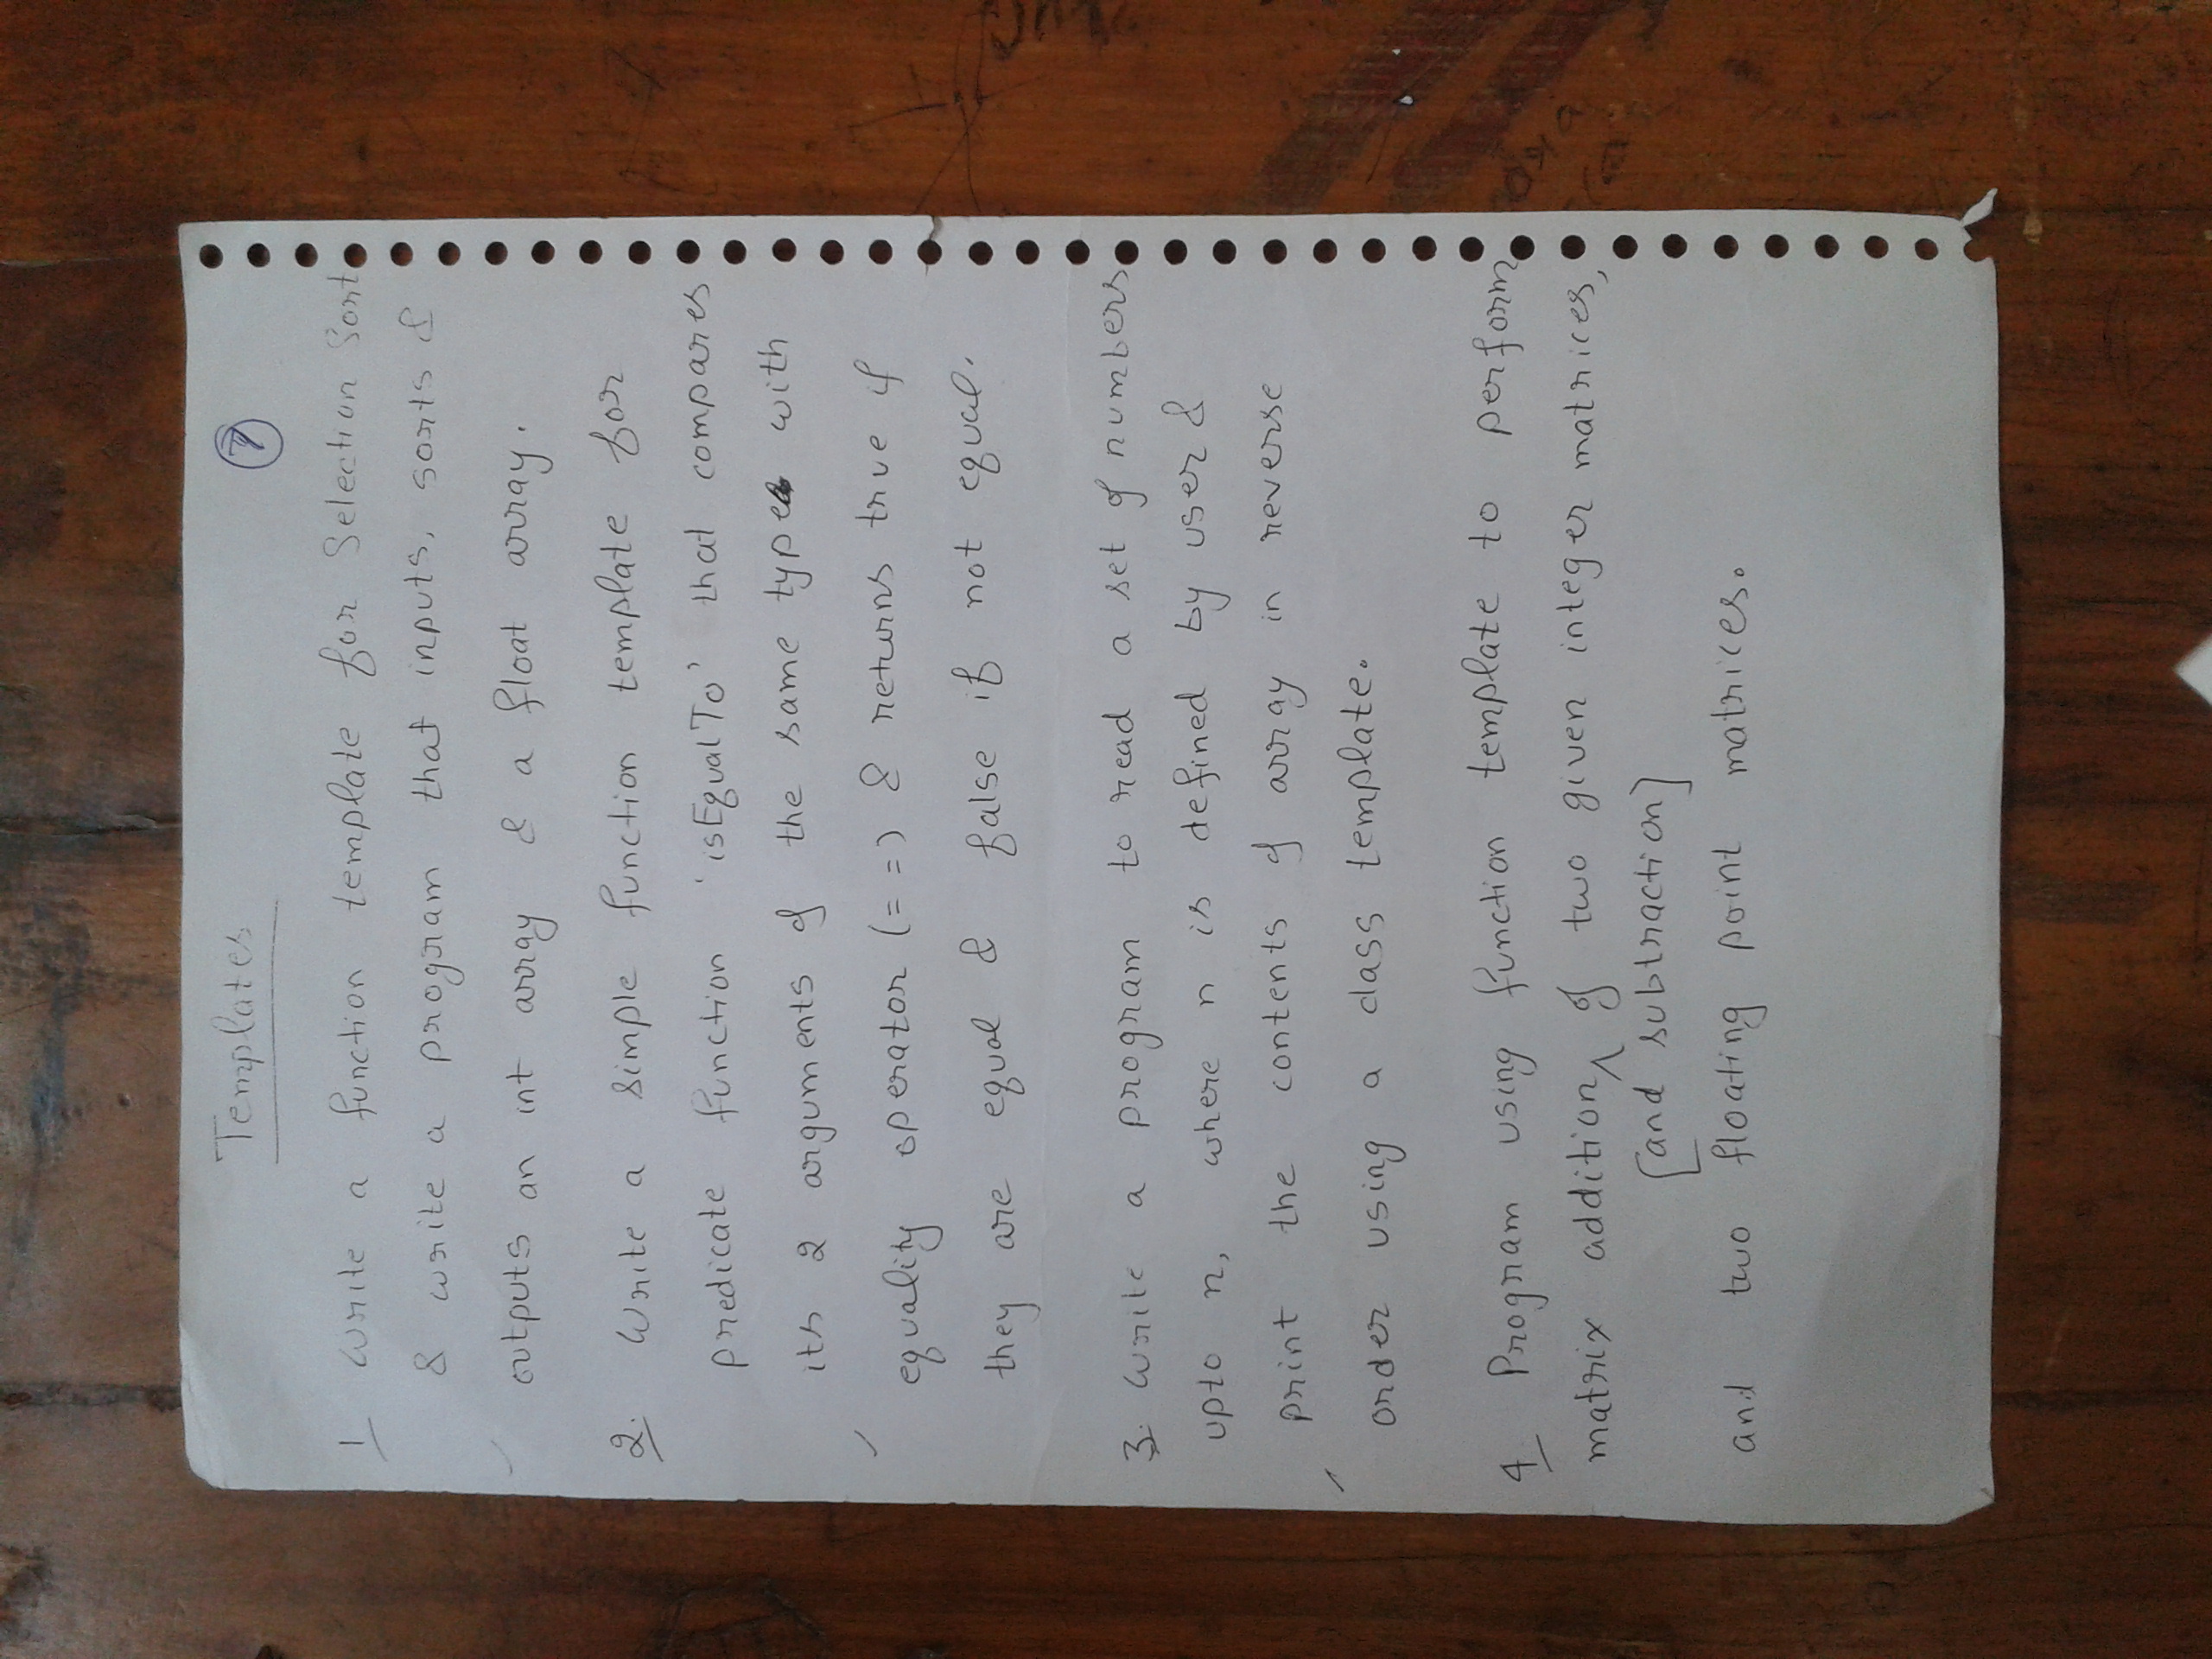 Templates
7
1 Write a function template for Selection Sort
& write a program that inputs, sorts &
outputs an int array & a float array.
2. Write a simple function template for
predicate function 'isEqualTo' that compares
its 2 arguments of the same type with
equality operator (==) & returns true if
they are equal & false if not equal.
3. Write a program to read a set of numbers
upto n, where n is defined by user &
print the contents of array in reverse
order using a class template.
4 Program using function template to perform
matrix addition of two given integer matrices,
[and subtraction]
and two floating point matrices.